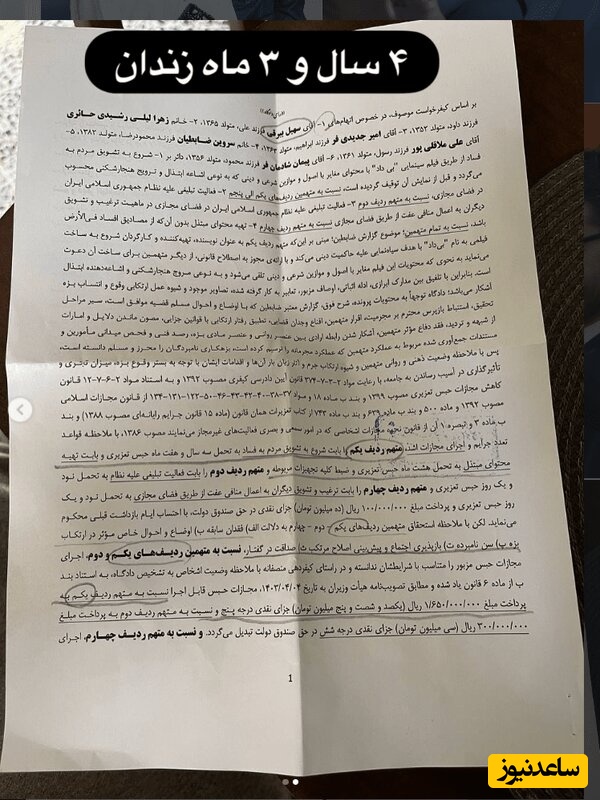 ۴ سال و ۳ ماه زندان
((رای دادگاه))
بر اساس کیفرخواست موصوف، در خصوص اتهام‌های ۱- آقای سهیل بیرقی فرزند علی، متولد ۱۳۶۵، ۲- خانم زهرا لیلی رشیدی حائری
فرزند داود، متولد ۱۳۵۲، ۳- آقای امیر جدیدی فر فرزند ابراهیم، متولد ۴- خانم سروین ضابطیان فرزند محمودرضا، متولد ۱۳۸۲، ۵-
آقای علی ملاقلی پور فرزند رسول، متولد ۱۳۶۱، ۶- آقای پیمان شادمان فر فرزند محمود، متولد ۱۳۵۶، دائر بر ۱- شروع به تشویق مردم به
فساد از طریق فیلم سینمایی "بی داد" با محتوای مغایر با اصول و موازین شرعی و دینی که به نوعی اشاعه ابتذال و ترویج هنجارشکنی محسوب
می‌گردد و قبل از نمایش آن توقیف گردیده است، نسبت به متهمین ردیف‌های یکم الی پنجم ۲- فعالیت تبلیغی علیه نظام جمهوری اسلامی ایران
در فضای مجازی، نسبت به متهم ردیف دوم ۳- فعالیت تبلیغی علیه نظام جمهوری اسلامی ایران در فضای مجازی در ماهیت ترغیب و تشویق
دیگران به اعمال منافی عفت از طریق فضای مجازی نسبت به متهم ردیف چهارم ۴- تهیه محتوای مبتذل بدون آن که از مصادیق افساد فی‌الأرض
باشد، نسبت به تمام متهمین؛ موضوع گزارش ضابطین؛ مبنی بر این‌که متهم ردیف یکم به عنوان نویسنده، تهیه‌کننده و کارگردان شروع به ساخت
فیلمی به نام "بی‌داد" با هدف سیاه‌نمایی علیه حاکمیت دینی می‌کند و با ارائه‌ی مجوز به اصطلاح قانونی، از دیگر متهمین برای ساخت آن دعوت
می‌نماید به نحوی که محتویات این فیلم مغایر با اصول و موازین شرعی و دینی تلقی می‌شود و به نوعی مروج هنجارشکنی و اشاعه‌دهنده ابتذال
است. بنابراین با تطبیق بین مدارک ابرازی، ادله اثباتی، اوصاف مزبور، تعابیر به کار گرفته شده، تصاویر موجود و شیوه عمل ارتکابی وقوع و انتساب بزه
آشکار می‌باشد؛ دادگاه توجهاً به محتویات پرونده، شرح فوق، گزارش معتبر ضابطین که با اوضاع و احوال مسلم قضیه موافق است، سیر مراحل
تحقیق، استنباط بازپرس محترم بر مجرمیت، اقرار متهمین، اقناع وجدان قضایی، تطبیق رفتار ارتکابی با قوانین جزایی، مصون ماندن دلایل و امارات
از شبهه و تردید، فقد دفاع مؤثر متهمین، آشکار شدن رابطه ارادی بین عنصر روانی و عنصر مادی بزه، رصد فنی و فحص میدانی مأمورین و
مستندات جمع‌آوری شده مربوط به عملکرد متهمین که عملکرد مجرمانه را ترسیم کرده است، بزهکاری نامبردگان را محرز و مسلم دانسته است،
پس با ملاحظه وضعیت ذهنی و روانی متهمین و شیوه ارتکاب جرم و آثار زیان بار آن‌ها و اقدامات ایشان با توجه به بستر وقوع بزه، میزان تجری و
تأثیرگذاری در آسیب رساندن به جامعه، با رعایت مواد ۲-۳-۷-۳۷۴ قانون آیین دادرسی کیفری مصوب ۱۳۹۲ و به استناد مواد ۲-۶-۷-۱۲ قانون
کاهش مجازات حبس تعزیری مصوب ۱۳۹۹ و بند ب ماده ۱۸ و مواد ۲۷-۳۷-۳۸-۴۰-۴۲-۴۳-۴۶-۵۰۰-۱۲۲-۱۳۱-۱۳۴ از قانون مجازات اسلامی
مصوب ۱۳۹۲ و ماده ۵۰۰ و بند ب ماده ۶۳۹ و بند ب ماده ۷۴۲ از کتاب تعزیرات همان قانون (ماده ۱۵ قانون جرایم رایانه‌ای مصوب ۱۳۸۸) و بند
ب ماده ۳ و تبصره ۱ آن از قانون نحوه مجازات اشخاصی که در امور سمعی و بصری فعالیت‌های غیرمجاز می‌نمایند مصوب ۱۳۸۶، با ملاحظه قواعد
تعدد جرایم و اجرای مجازات اشد، متهم ردیف یکم را بابت شروع به تشویق مردم به فساد به تحمل سه سال و هفت ماه حبس تعزیری و بابت تهیه
محتوای مبتذل به تحمل هشت ماه حبس تعزیری و ضبط کلیه تجهیزات مربوطه و متهم ردیف دوم را بابت فعالیت تبلیغی علیه نظام به تحمل نود
و یک روز حبس تعزیری و متهم ردیف چهارم را بابت ترغیب و تشویق دیگران به اعمال منافی عفت از طریق فضای مجازی به تحمل نود و یک
روز حبس تعزیری و پرداخت مبلغ ۱۰۰/۰۰۰/۰۰۰ ریال (ده میلیون تومان) جزای نقدی در حق صندوق دولت، با احتساب ایام بازداشت قبلی محکوم
می‌نماید. لکن با ملاحظه استحقاق متهمین ردیف‌های یکم - دوم - چهارم به دلالت الف) فقدان سابقه ب) اوضاع و احوال خاص مؤثر در ارتکاب
بزه پ) سن نامبرده ت) بازپذیری اجتماع و پیش‌بینی اصلاح مرتکب ث) صداقت در گفتار، نسبت به متهمین ردیف‌های یکم و دوم، اجرای
مجازات حبس مزبور را متناسب با شرایطشان ندانسته و در راستای کیفردهی منصفانه با ملاحظه وضعیت اشخاص به تشخیص دادگاه، به استناد بند
ب از ماده ۶ قانون یاد شده و مطابق تصویب‌نامه هیأت وزیران به تاریخ ۱۴۰۳/۰۴/۰۴، مجازات حبس قابل اجرا نسبت به متهم ردیف یکم به
پرداخت مبلغ ۱/۶۵۰/۰۰۰/۰۰۰ ریال (یکصد و شصت و پنج میلیون تومان) جزای نقدی درجه پنج و نسبت به متهم ردیف دوم به پرداخت مبلغ
۳۰۰/۰۰۰/۰۰۰ ریال (سی میلیون تومان) جزای نقدی درجه شش در حق صندوق دولت تبدیل می‌گردد. و نسبت به متهم ردیف چهارم، اجرای
1
ساعدنیوز